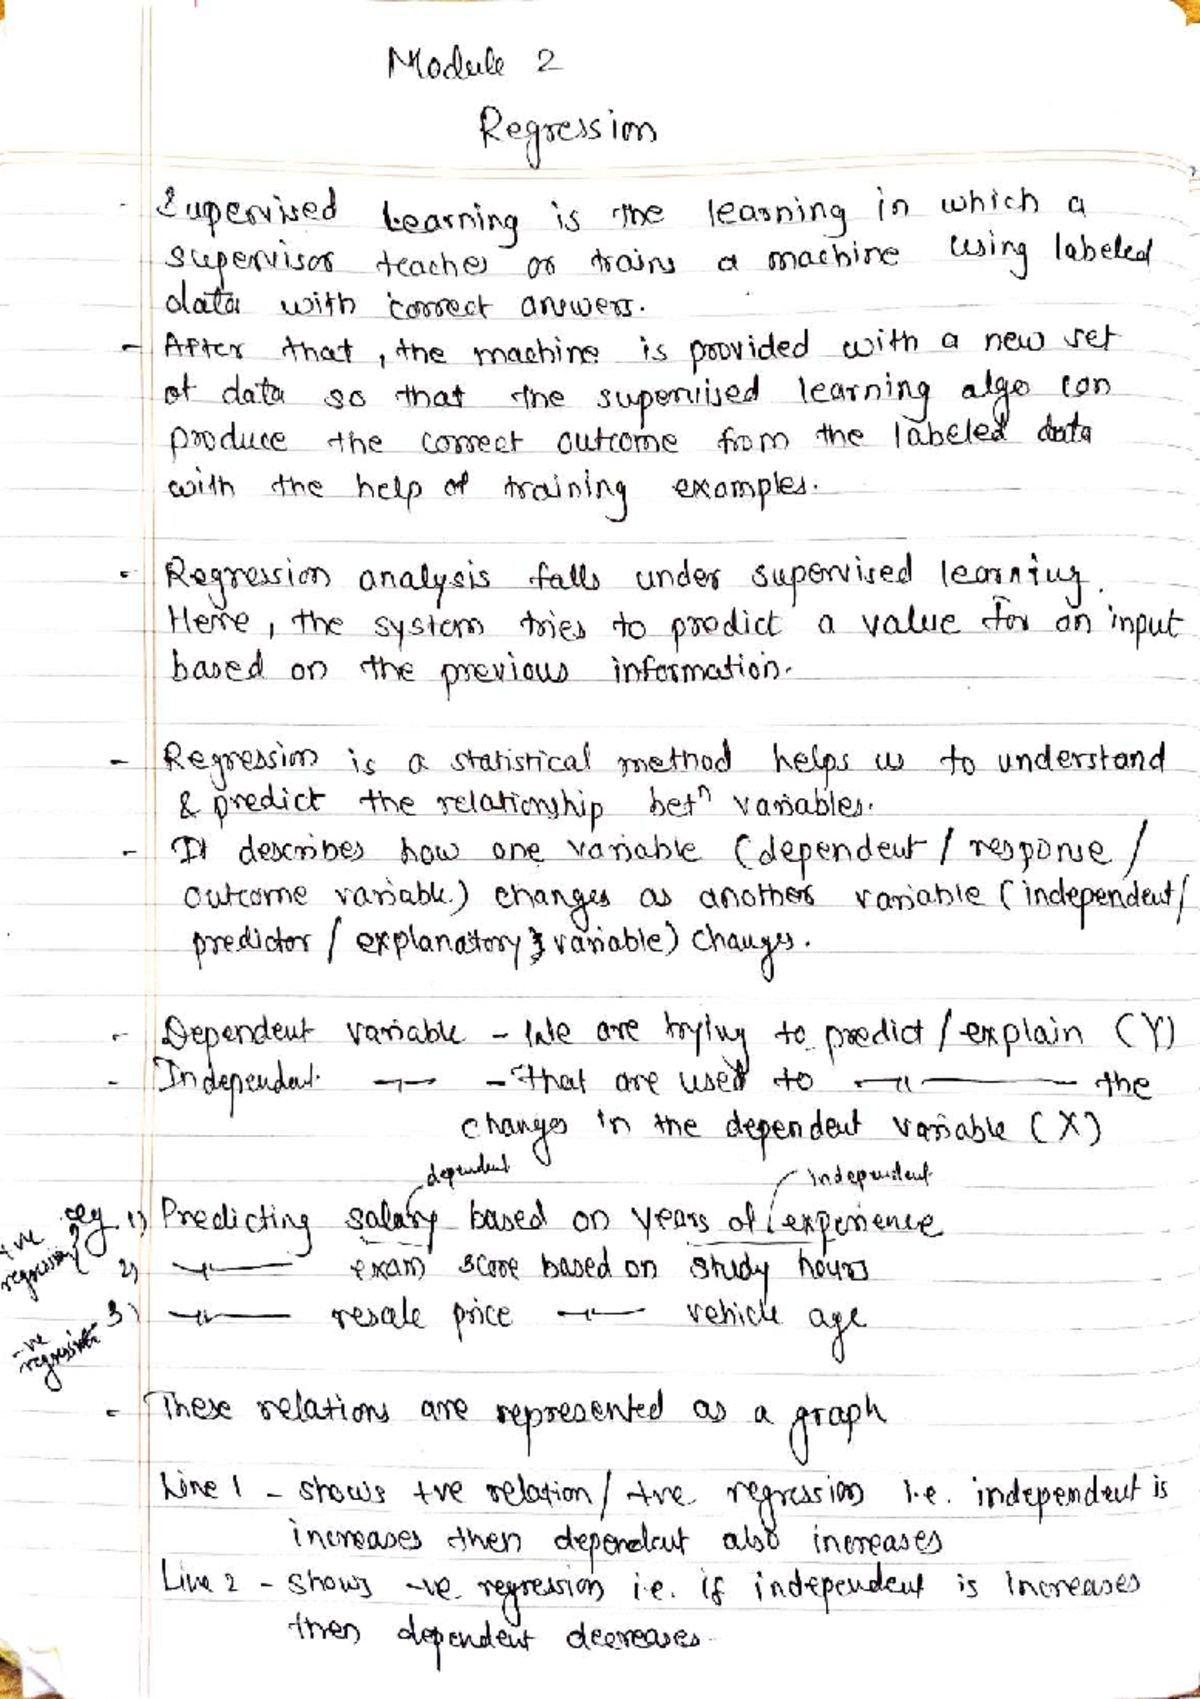 Module 2
Regression
- Supervised Learning is the learning in which a
supervisor teaches or trains a machine using labeled
data with correct answers.
- After that, the machine is provided with a new set
of data so that the supervised learning algo can
produce the correct outcome from the labeled data
with the help of training examples.
- Regression analysis falls under supervised learning.
Here, the system tries to predict a value for an input
based on the previous information.
- Regression is a statistical method helps us to understand
& predict the relationship betⁿ variables.
- It describes how one variable (dependent / response /
outcome variable) changes as another variable (independent/
predictor / explanatory variable) changes.
- Dependent variable - We are trying to predict / explain (Y)
- Independent —〃— - that are used to —〃— the
changes in the dependent variable (X)
dependent independent
eg 1) Predicting salary based on years of experience
+ve
regression
2) —〃— exam score based on study hours
3) —〃— resale price —〃— vehicle age
-ve
regression
- These relations are represented as a graph
Line 1 - shows +ve relation / +ve regression i.e. independent is
increases then dependent also increases
Line 2 - shows -ve regression i.e. if independent is increases
then dependent decreases.